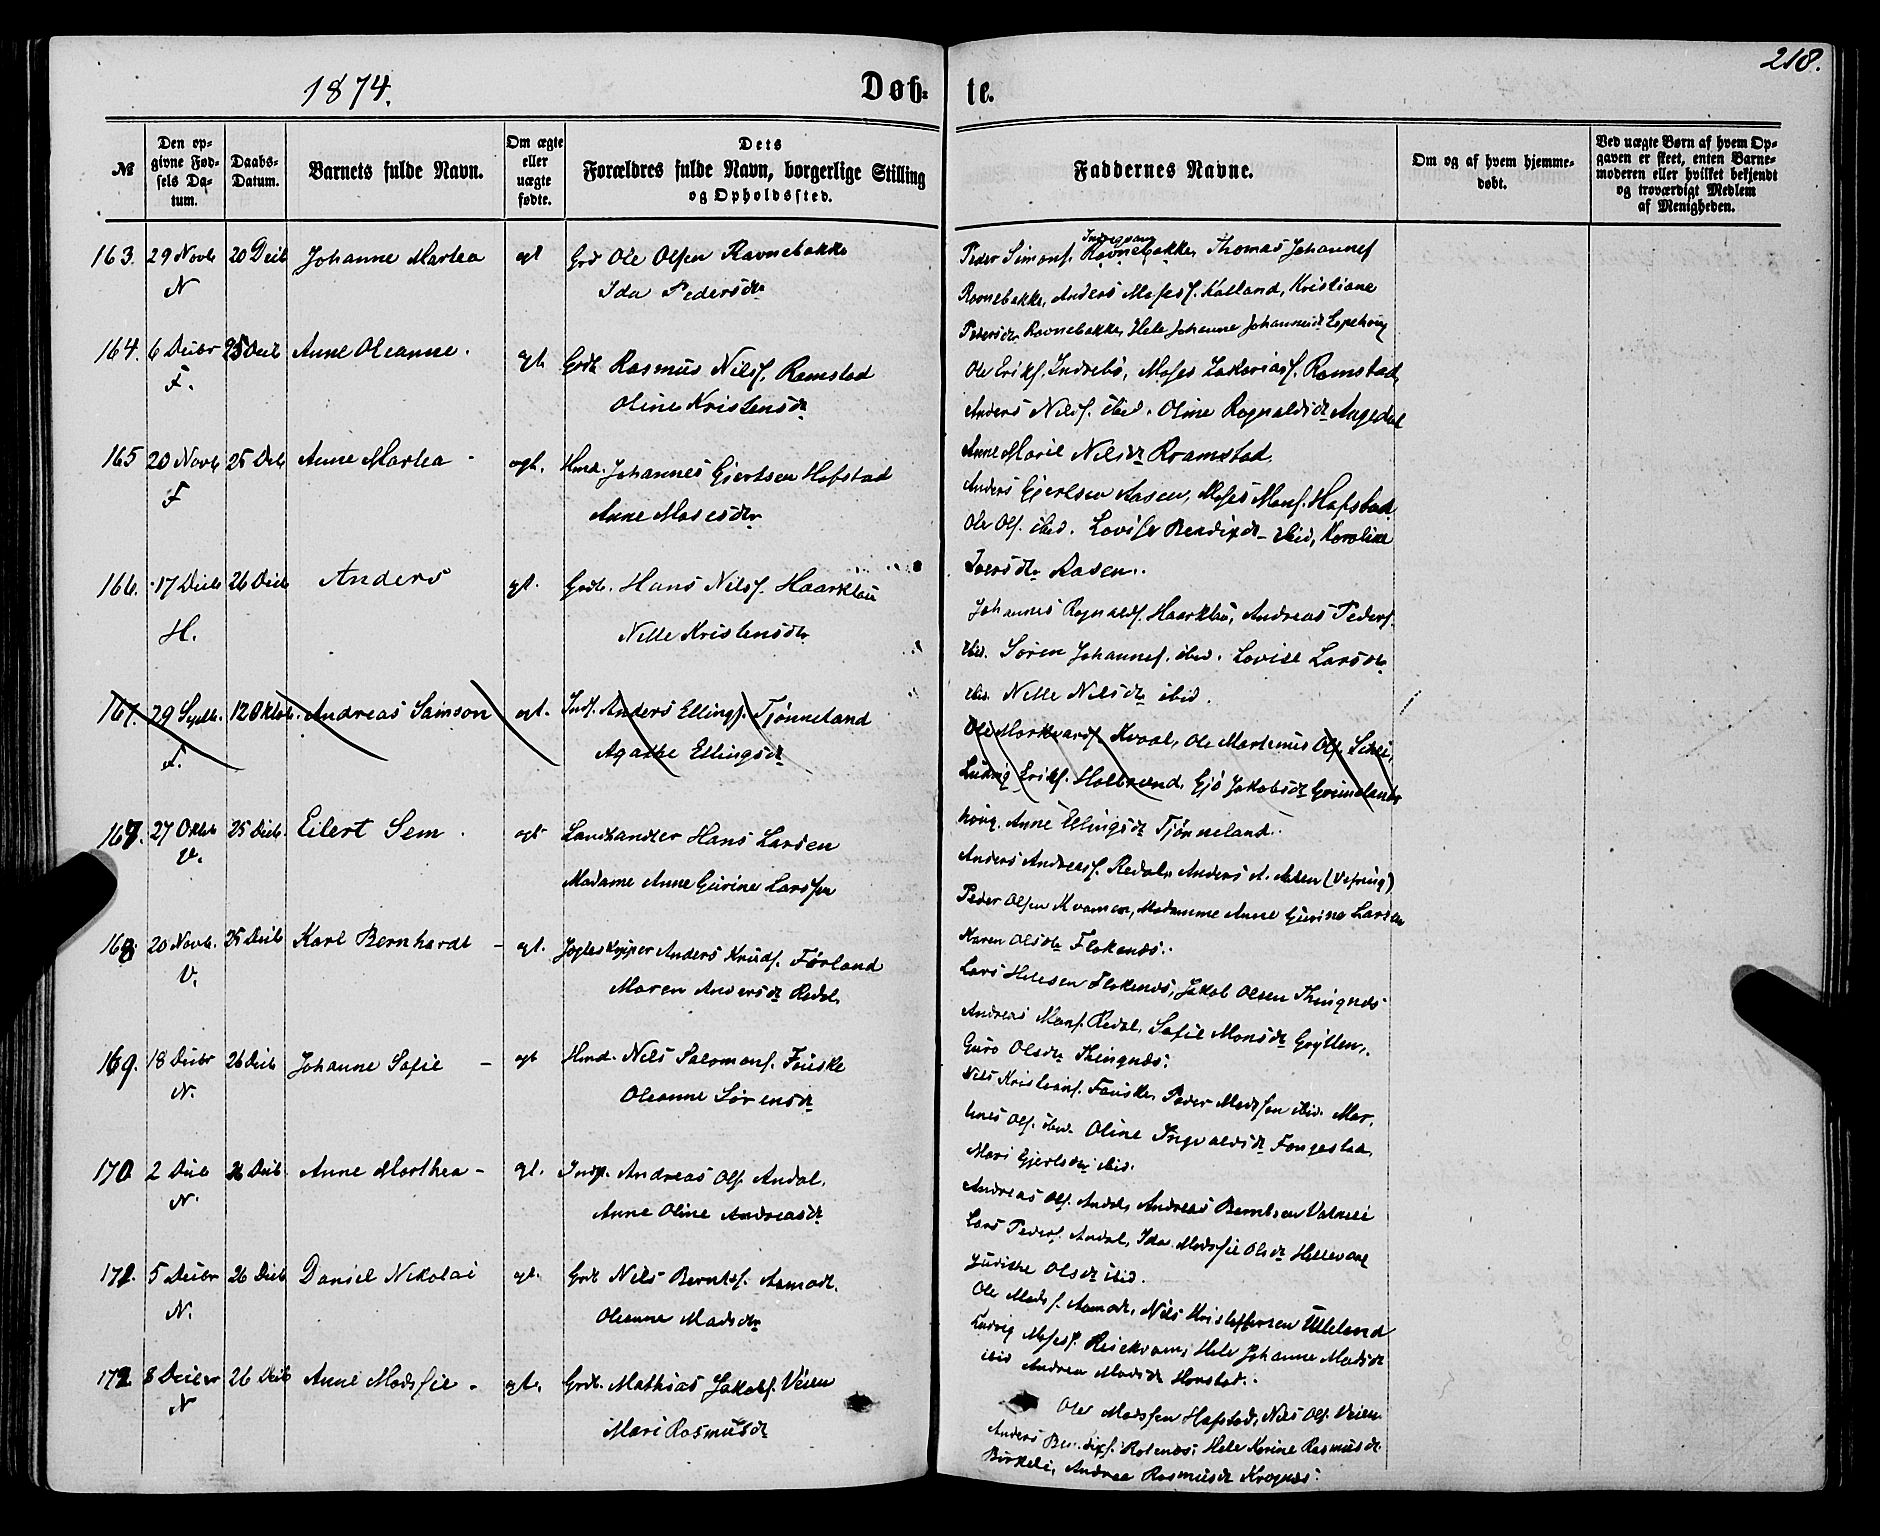 218.
1874. Døb- te.
№
Den op-
givne Fød-
sels Da-
tum.
Daabs-
Datum.
Barnets fulde Navn.
Om ægte
eller
uægte
fødte.
Dets
Forældres fulde Navn, borgerlige Stilling
og Opholdssted.
Faddernes Navne.
Om og af hvem hjemme-
døbt.
Ved uægte Børn af hvem Op-
gaven er skeet, enten Barne-
moderen eller hvilket bekjendt
og troværdigt Medlem
af Menigheden.
163. 29 Novb 20 Decb Johanne Martea egt Grd Ole Olsen Ravnebakke
N Ida Pedersdr
Peder Simons. Ravnebakke, Thomas Johannes
Ravnebakke, Anders Moses. Kalland, Kristiane
Pedersdr Ravnebakke, Hele Johanne Johannesdr
164. 6 Decbr 25 Decb Anne Oleanne. egt. Grdb. Rasmus Nils. Ramstad
F. Oline Kristensdr
Ole Eriks. Indrebø, Moses Zakarias. Ramstad,
Anders Nils. ibid. Oline Ragnaldsdr Angedal
Anne Marie Nilsdr Ramstad.
165 20 Novb 25 Decb Anne Martea - egt. Hmd. Johannes Gjertsen Hafstad
F Anne Mosesdr
Anders Gjertsen Aasen, Moses Mons. Hafstad
Ole Ols. ibid. Lovise Bendixdr ibid, Karoline
Iversdr Aasen.
166. 17 Decb 26 Decb Anders egt. Grdb. Hans Nils. Haarklau
H. Nille Kristensdr
Johannes Ragnalds. Haarklau, Andreas Peders.
ibid. Søren Johannes. ibid. Lovise Larsdr
ibid. Nille Nilsdr ibid.
167. 29 Septb. 12 Oktob. Andreas Samson egt. Inds. Anders Ellings. Tjønneland
F. Agathe Ellingsdr
Ole Markvards. Kvaal, Ole Martinus Ols.
Ludvig Eriks. Jakobsdr Grimelands
houg. Anne Ellingsdr Tjønneland.
167. 27 Oktob 25 Decb. Eilert Sem. egt Landhandler Hans Larsen
V. Madame Anne Gurine Larsen
Anders Andreas. Redal, Anders A. (Vefring)
Peder Olsen Kvamen, Madamme Anne Gurine Larsen
Karen Olsdr Flokenæs.
168. 20 Novb. 25 Decb Karl Bernhardt - egt. Anders Knuds. Førland
V. Maren Andersdr Redal.
Lars Helesen Flokenæs, Jakob Olsen Thingnæs
Andreas Mons. Redal, Sofie Monsdr Grytten.
Guro Olsdr Thingnæs.
169. 18 Decbr 26 Decb Johanne Sofie - egt Hmd. Nils Salomons. Fauske
N. Oleanne Sørensdr
Nils Kristians. Fauske, Peder Madsen ibid. Mar-
tines Ols. ibid. Oline Ingvaldsdr Fongestad,
Mari Gjertsdr ibid.
170 2 Decb 26 Decb. Anne Marthea - egt. Andreas Ols. Andal,
N. Anne Oline Andreasdr
Andreas Ols. Andal, Andreas Berntsen
Lars Peders. Andal, Ida Madsfie Olsdr Hellevaag
Judithe Olsdr ibid.
171. 5 Decbr 26 Decb Daniel Nikolai egt. Grdb Nils Bernts. Aamodt.
N. Oleanne Madsdr
Ole Mads. Aamodt, Nils Kristoffersen Ulleland
Ludvig Moses. Hele Johanne Madsdr
ibid Andrea Madsdr
172 8 Decbr 26 Decb Anne Madsfie - egt. Grdb. Mathias Jakobs. Veien
N Mari Rasmusdr
Ole Madsen Hafstad, Nils Ols. Veien
Anders Bendixs. Hele Karine Rasmusdr
Birkeli, Andrea Rasmusdr Krognæs.